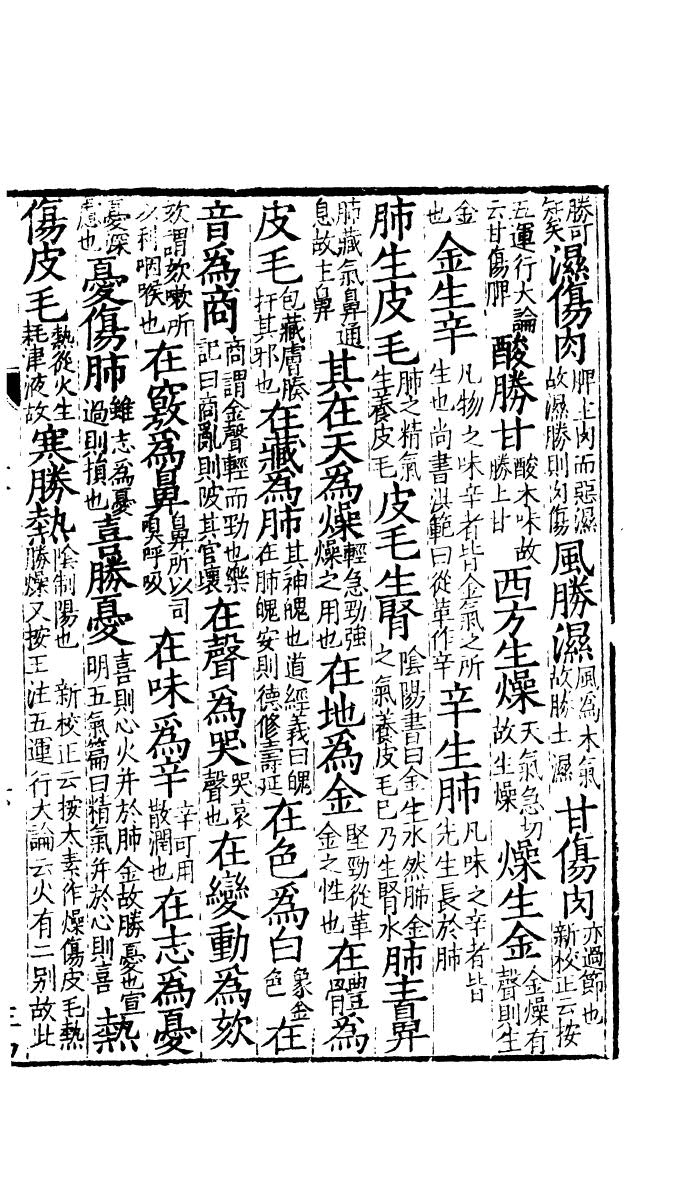 勝可知矣濕傷肉脾主肉而惡濕故濕勝則肉傷風勝濕風爲木氣故勝土濕甘傷肉亦過節也新校正云按
五運行大論云甘傷脾酸勝甘酸木味故勝土甘西方生燥天氣急切故生燥燥生金金燥有聲則生
金也金生辛凡物之味辛者皆金氣之所生也尚書洪範曰從革作辛辛生肺凡味之辛者皆先生長於肺
肺生皮毛肺之精氣生養皮毛皮毛生腎陰陽書曰金生水然肺金之氣養皮毛已乃生腎水肺主鼻
肺藏氣鼻通息故主鼻其在天爲燥輕急勁強燥之用也在地爲金堅勁從革金之性也在體爲
皮毛包藏膚腠扞其邪也在藏爲肺其神魄也道經義曰魄在肺魄安則德修壽延在色爲白象金色在
音爲商商謂金聲輕而勁也樂記曰商亂則陂其官壞在聲爲哭哭哀聲也在變動爲欬
欬謂欬嗽所以利咽喉也在竅爲鼻鼻所以司嗅呼吸在味爲辛辛可用散潤也在志爲憂
憂深慮也憂傷肺雖志爲憂過則損也喜勝憂喜則心火并於肺金故勝憂也宣明五氣篇曰精氣并於心則喜熱
傷皮毛熱從火生耗津液故寒勝熱陰制陽也 新校正云按太素作燥傷皮毛熱勝燥又按王注五運行大論云火有二別故此